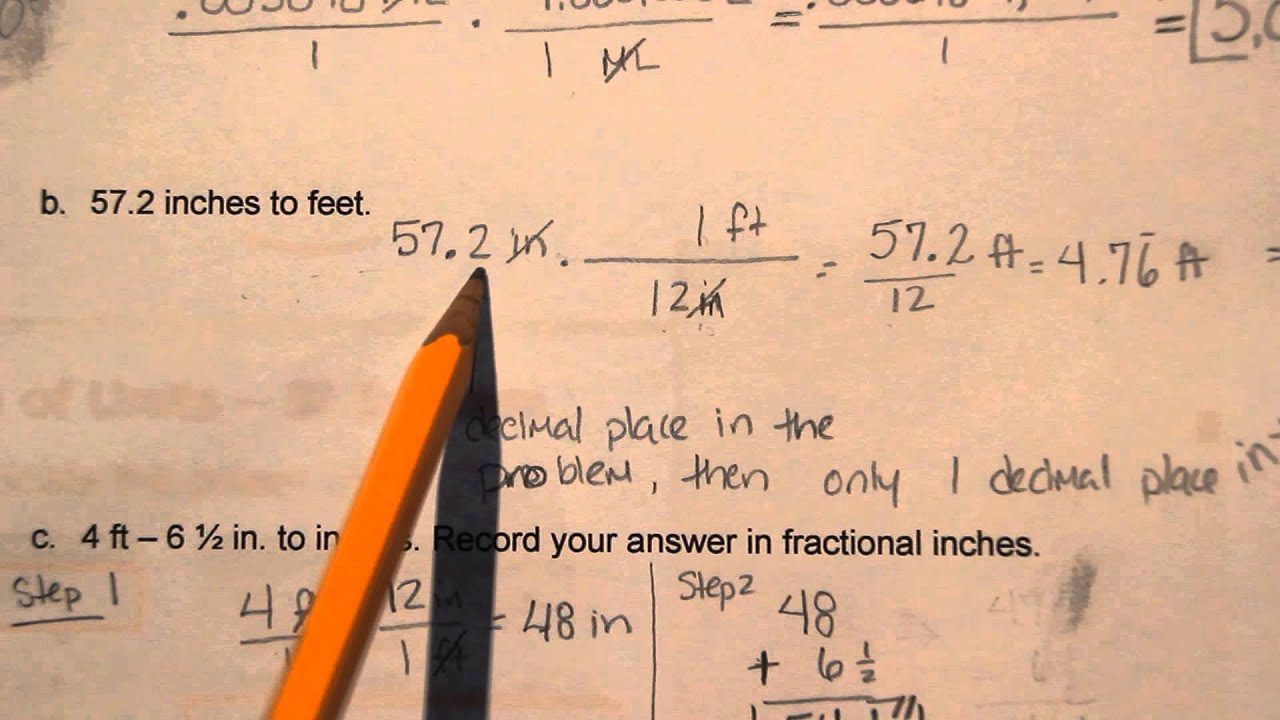 1 · 1 mL = 1 =
b. 57.2 inches to feet.
57.2 in · 1 ft / 12 in = 57.2 ft / 12 = 4.76̄ ft =
decimal place in the
problem, then only 1 decimal place in
c. 4 ft – 6 ½ in. to in s. Record your answer in fractional inches.
Step 1
4 12 in / 1 1 ft = 48 in
Step 2
48
+ 6 ½